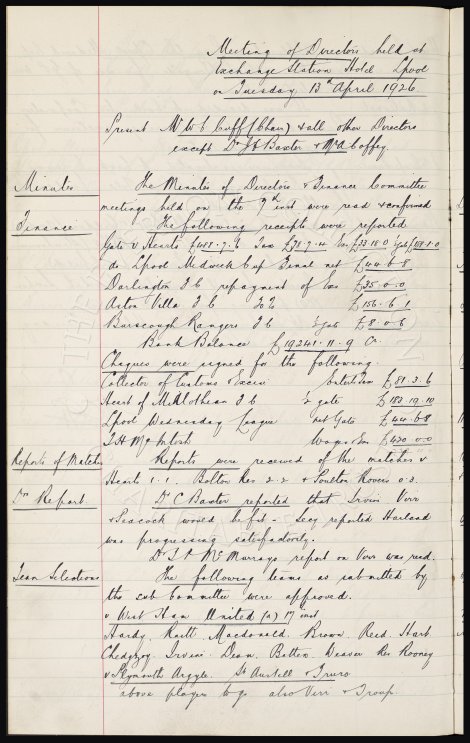 Meeting of Directors held at
Exchange Station Hotel Lpool
on Tuesday 13th April 1926.
Present Mr W C Cuff (Chair) & all other Directors
except Dr J C Baxter & Mr A Coffey.
Minutes
The Minutes of Directors & Finance Committee
meetings held on the 7th inst were read & confirmed
Finance
The following receipts were reported
Gate v Hearts £481.7.6 Tax £78.7.4
do Lpool Midweek Cup Final net £44.6.8
Darlington F C repayment of loan £35.0.0
Aston Villa F C £156.6.1
Burscough Rangers F C ½ gate £8.0.6
Bank Balance £19,241.11.9 Cr.
Cheques were signed for the following
Collector of Customs & Excise Entertt Tax £81.3.6
Heart of Midlothian F C ½ gate £183.19.10
Lpool Wednesday League net Gate £44.6.8
T. H McIntosh Wages &c £420.0.0
Reports of Matches
Reports were received of the matches v
Hearts 1.1. Bolton Res 2.2 & Poulton Rovers 0.3.
Drs Report
Dr C Baxter reported that Irvine Virr
& Peacock would be fit - Secy reported Harland
was progressing satisfactorily.
Dr McMurrays report on Virr was read.
Team Selections
The following teams as submitted by
the sub Committee were approved.
v West Ham United (a) 17 inst
Hardy. Raitt. Macdonald. Brown. Reid. Hart
Chedgzoy. Irvine. Dean. Batten. Weaver Res Rooney
v Plymouth Argyle. St Austell & Truro
above players to go also Virr & Troup.